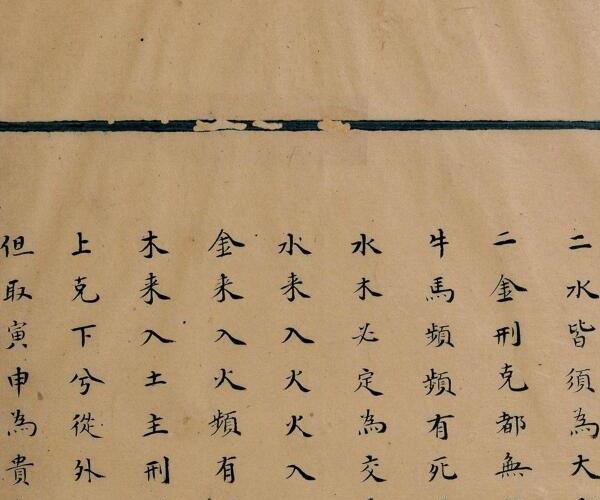 二水皆須為大
二金刑克都無
牛馬頻頻有死
水木必定為交
水来入火火入
金来入火頻有
木来入土主刑
上克下兮從外
但取寅申為貴